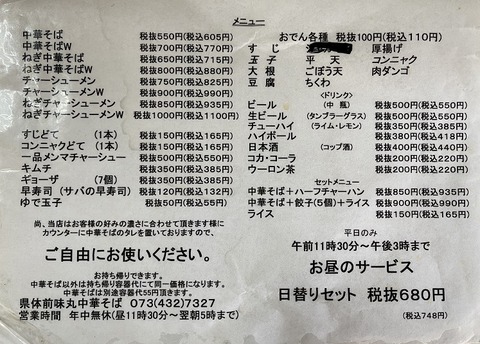 メニュー
中華そば 税抜550円(税込605円)
中華そばW 税抜700円(税込770円)
ねぎ中華そば 税抜650円(税込715円)
ねぎ中華そばW 税抜800円(税込880円)
チャーシューメン 税抜750円(税込825円)
チャーシューメンW 税抜900円(税込990円)
ねぎチャーシューメン 税抜850円(税込935円)
ねぎチャーシューメンW 税抜1000円(税込1100円)
すじどて (1本) 税抜150円(税込165円)
コンニャクどて (1本) 税抜150円(税込165円)
一品メンマチャーシュー 税抜500円(税込550円)
キムチ 税抜350円(税込385円)
ギョーザ (7個) 税抜350円(税込385円)
早寿司(サバの早寿司) 税抜120円(税込132円)
ゆで玉子 税抜50円(税込55円)
尚、当店はお客様の好みの濃さに合わせて頂きます様に
カウンターに中華そばのタレを置いておりますので、
ご自由にお使いください。
お持ち帰りできます。
中華そば以外は持ち帰り容器代にて同一価格になります。
中華そばは別途容器代55円頂きます。
県体前味丸中華そば 073(432)7327
営業時間 年中無休(昼11時30分~翌朝5時まで)
おでん各種 税抜100円(税込110円)
すじ 厚揚げ
玉子 平天 コンニャク
大根 ごぼう天 肉ダンゴ
豆腐 ちくわ
<ドリンク>
ビール (中瓶) 税抜500円(税込550円)
生ビール (タンブラーグラス) 税抜500円(税込550円)
チューハイ (ライム・レモン) 税抜350円(税込385円)
ハイボール 税抜380円(税込418円)
日本酒 (コップ酒) 税抜400円(税込440円)
コカ・コーラ 税抜200円(税込220円)
ウーロン茶 税抜200円(税込220円)
セットメニュー
中華そば+ハーフチャーハン 税抜850円(税込935円)
中華そば+餃子(5個)+ライス 税抜900円(税込990円)
ライス 税抜150円(税込165円)
平日のみ
午前11時30分~午後3時まで
お昼のサービス
日替りセット 税抜680円
(税込748円)